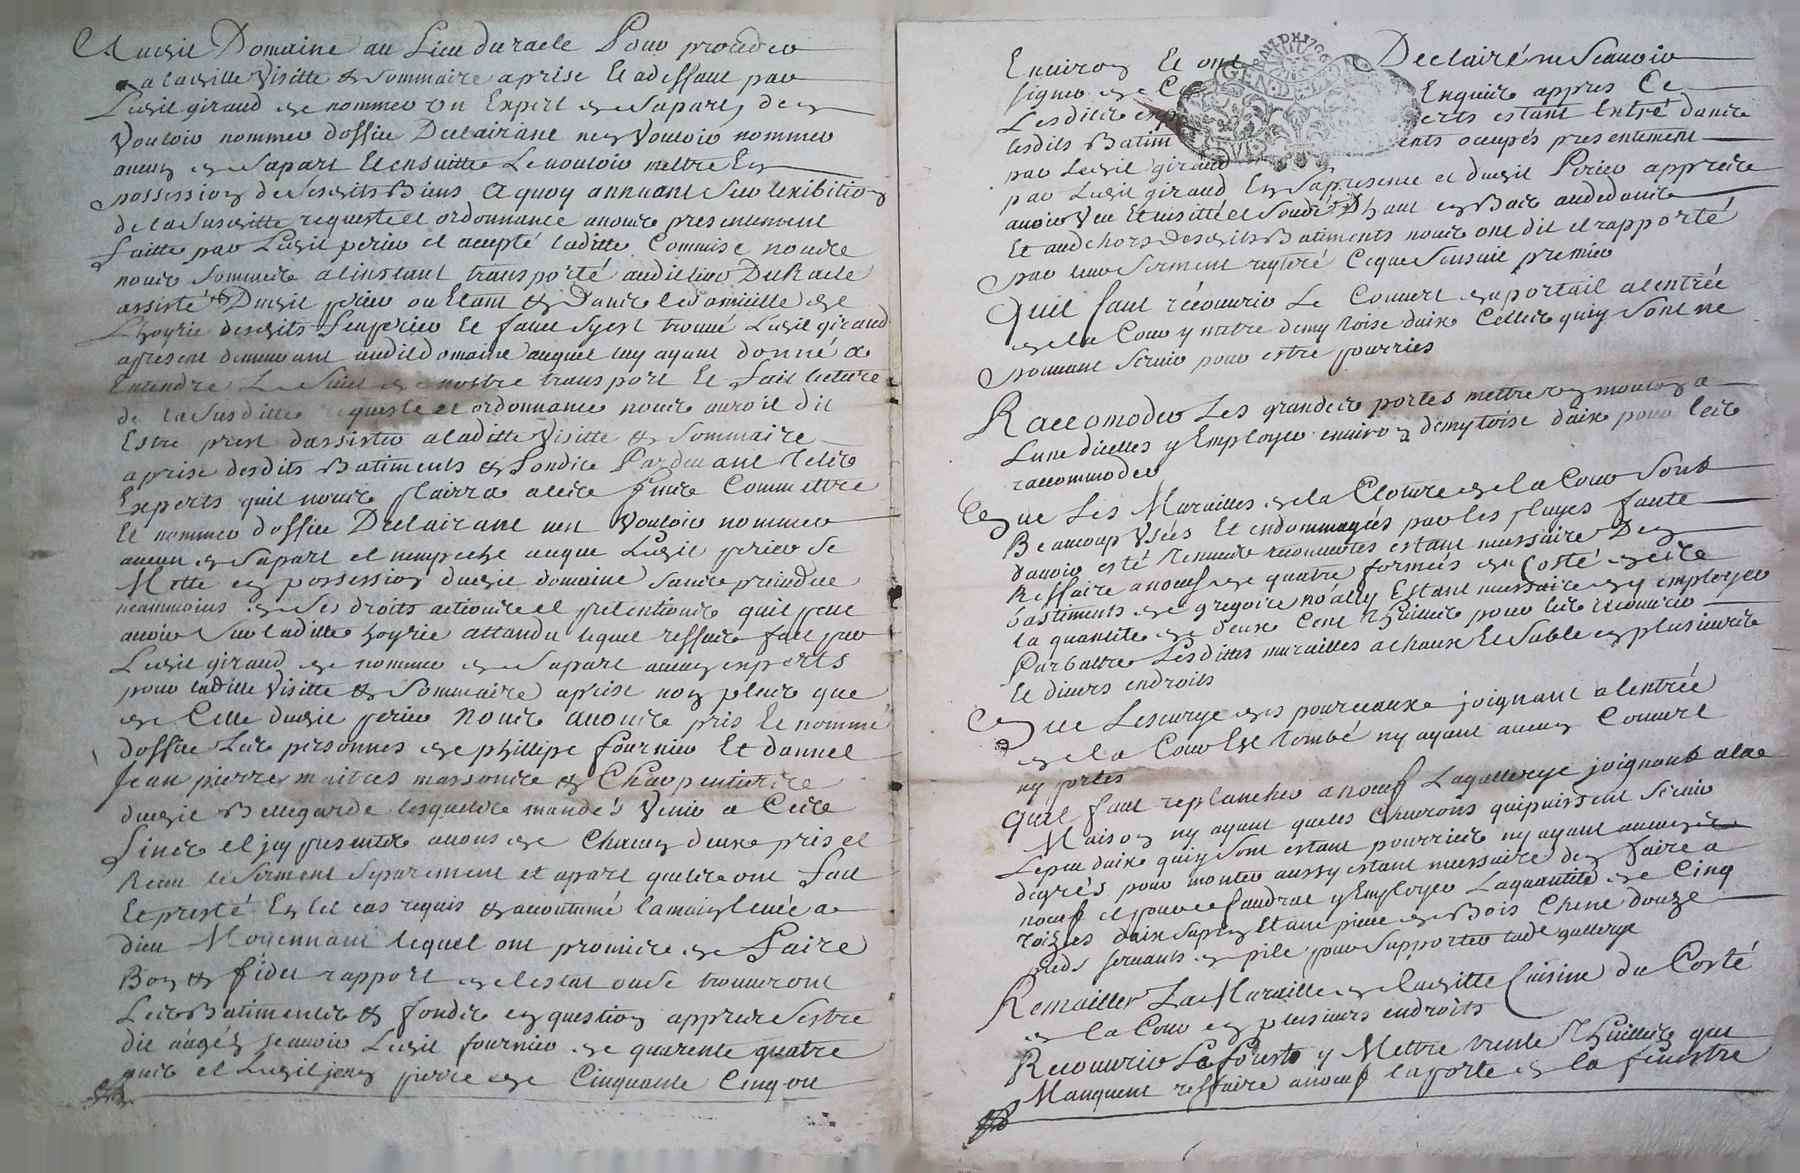 Audit Domaine au Lieu duracle Pour proceder
a laditte Visitte & Sommaire aprise Et adeffaut par
Ledit giraud de nommer un Expert de sa part, de
Vouloir nommer doffice Declairant ne Vouloir nommer
aucun de sa part Et ensuitte Le vouloir mettre En
possession desdits Biens A quoy annuant Sur lexibition
de la Susditte requeste et ordonnance a nous presentement
faitte par Ledit perier et accepté laditte Commise nous
nous Sommes alinstant transporté audit lieu Du Racle
assisté Dudit perier ou Estant & Dans le domicille de
Lhoyrie desdits perier Et faure Syest trouvé Ledit giraud
apresent demeurant audit domaine auquel luy ayant donné a
Entendre Le Sujet de nostre transport Et fait lecture
de la Susditte requeste et ordonnance nous auroit dit
Estre prest dassister a laditte Visitte & Sommaire
aprise desdits Batiments & fondts Pardevant Telss
Experts quil nous plairra a ces fins Commettre
Et nommer doffice Declairant nen Vouloir nommer
aucun de Sapart et nempeche auque Ledit perier se
Mette en possession dudit domaine Sans prejudice
neammoins de Ses droits actions et pretentions quil peut
avoir Sur laditte hoyrie attandu lequel reffus fait par
Ledit giraud de nommer de Sapart aucun experts
pour laditte Visitte & Sommaire aprise non plus que
de Celle dudit perier Nous avons pris Et nommé
doffice Les personnes de phillipe fournier Et dannet
Jean pierre maitres massons & Charpentiers
dudit Bellegarde lesquels mandés Venir a Ces
fins et jcy presents avons de Chacun deux pris et
Receu le Serment Separement et apart quils ont fait
Et presté En tel cas requis & accoutumé la main levée a
dieu Moyennant lequel ont promis de faire
Bon & fidel rapport de lestat ou se trouveront
Les Batiments & fonds en question appres Sestre
dit aagés scavoir Ledit fournier de quarente quatre
ans et Ledit jean pierre de Cinquante Cinq ou
Environ Et ont Declairé ne Scavoir
signer de Enquis appres Ce
Lesdits estant Entré dans
lesdits Batim ents occupés presentement
par Ledit giraud
par Ledit giraud En Sa presence et dudit Perier appres
avoir Veu Et visitté et Sondé D'haut en Bas audedans
Et audehors desdits Batiments nous ont dit et rapporté
par leur Serment reyteré Ceque Sensuit premier
Quil faut recouvrir Le Couvert du portail alentrée
de la Cour y mettre demy toise daix Celles quiy Sont ne
pouvant Servir pour estre pourries
Raccomoder Les grandes portes mettre un montan a
Lune dicelles y Employer environ demy toise daix pour les
raccommoder
Que Les Murailles de la Cloture de la Cour Sont
Beaucoup Usées Et endommagées par les pluyes faute
davoir esté Tenues recouvertes estant necessaire Den
Reffaire a neuf de quatre formes du Costé des
bastiments de gregoire noally Estant necessaire dy employer
la quantité de deux Cent Thuilles pour les recouvrir
Parbattre Lesdittes murailles a chaux Et Sable en plusieurs
Et divers endroits
Que Lescurye des pourceaux joignant alentrée
de la Cour Est tombé ny ayant aucun Couvert
ny portes
Quil faut replancher a neuf Lagallerye joignant a la
Maison ny ayant que les Chevrons quipuissent Servir
Le peu daix quiy Sont estant pourries ny ayant aucuns
degrés pour monter aussy estant necessaire den faire a
neuf et pour ce faudrat y Employer Laquantité de Cinq
toizes daix Sapin Et une piece de Bois Chene douze
pieds servants de pile pour Supporter lade gallerye
Remailler La Muraille de laditte Cuisine du Costé
de la Cour en plusieurs endroits
Recouvrir Le fourt y Mettre trente Thuilles qui
Manquent reffaire a neuf la porte de la fenestre